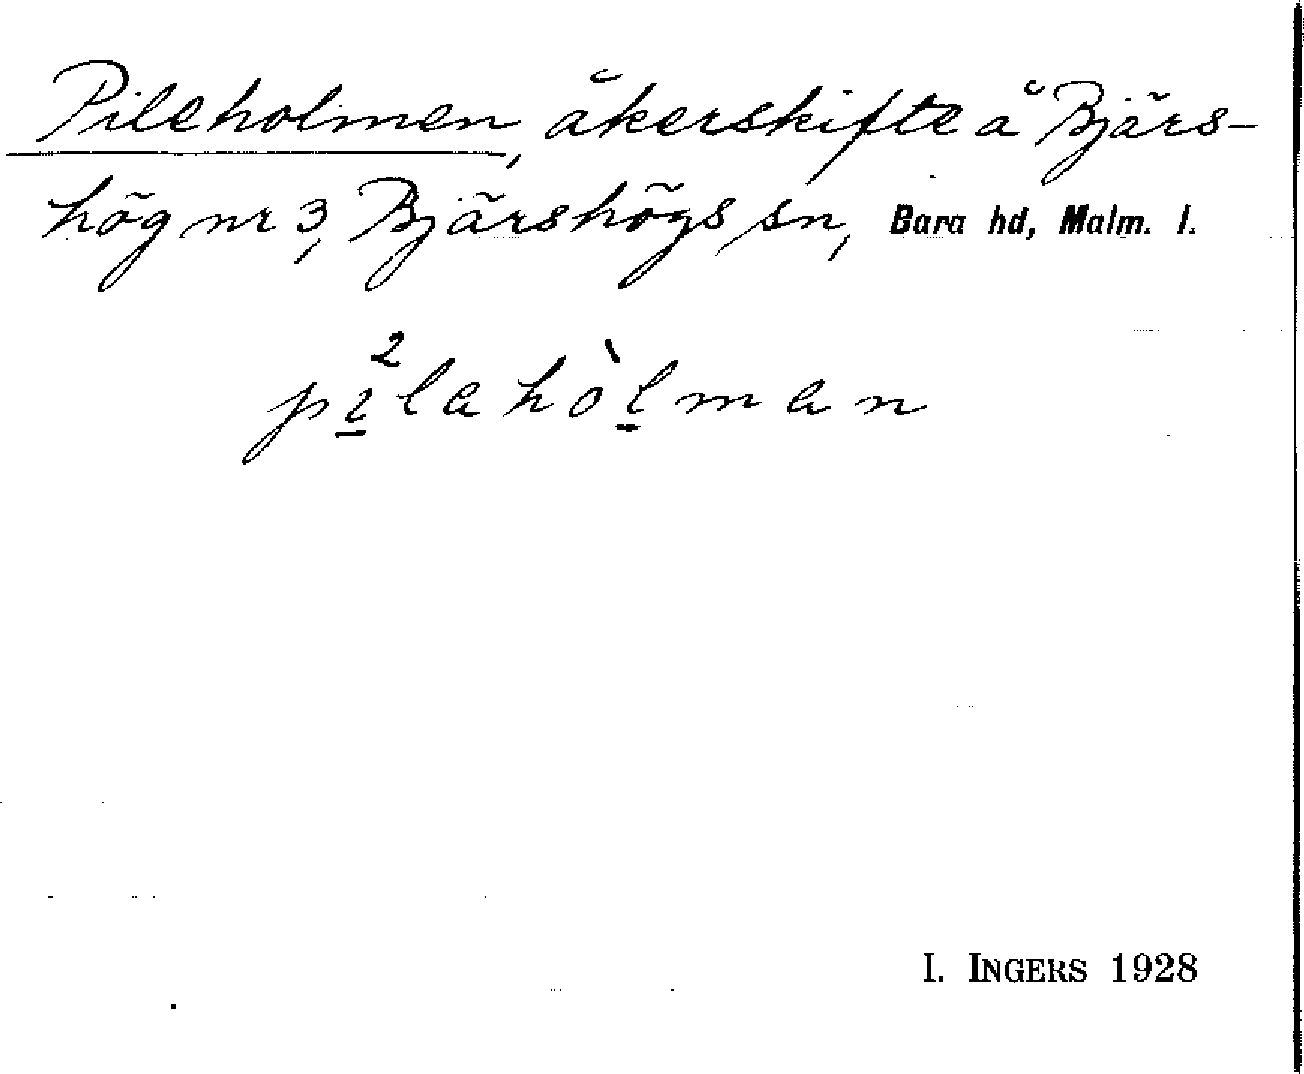 Pileholmen, åkerskifte å Bjärs-
hög nr 3, Bjärshögs sn, Bara hd, Malm. l.
pi̱²lahòḻman
I. INGERS 1928